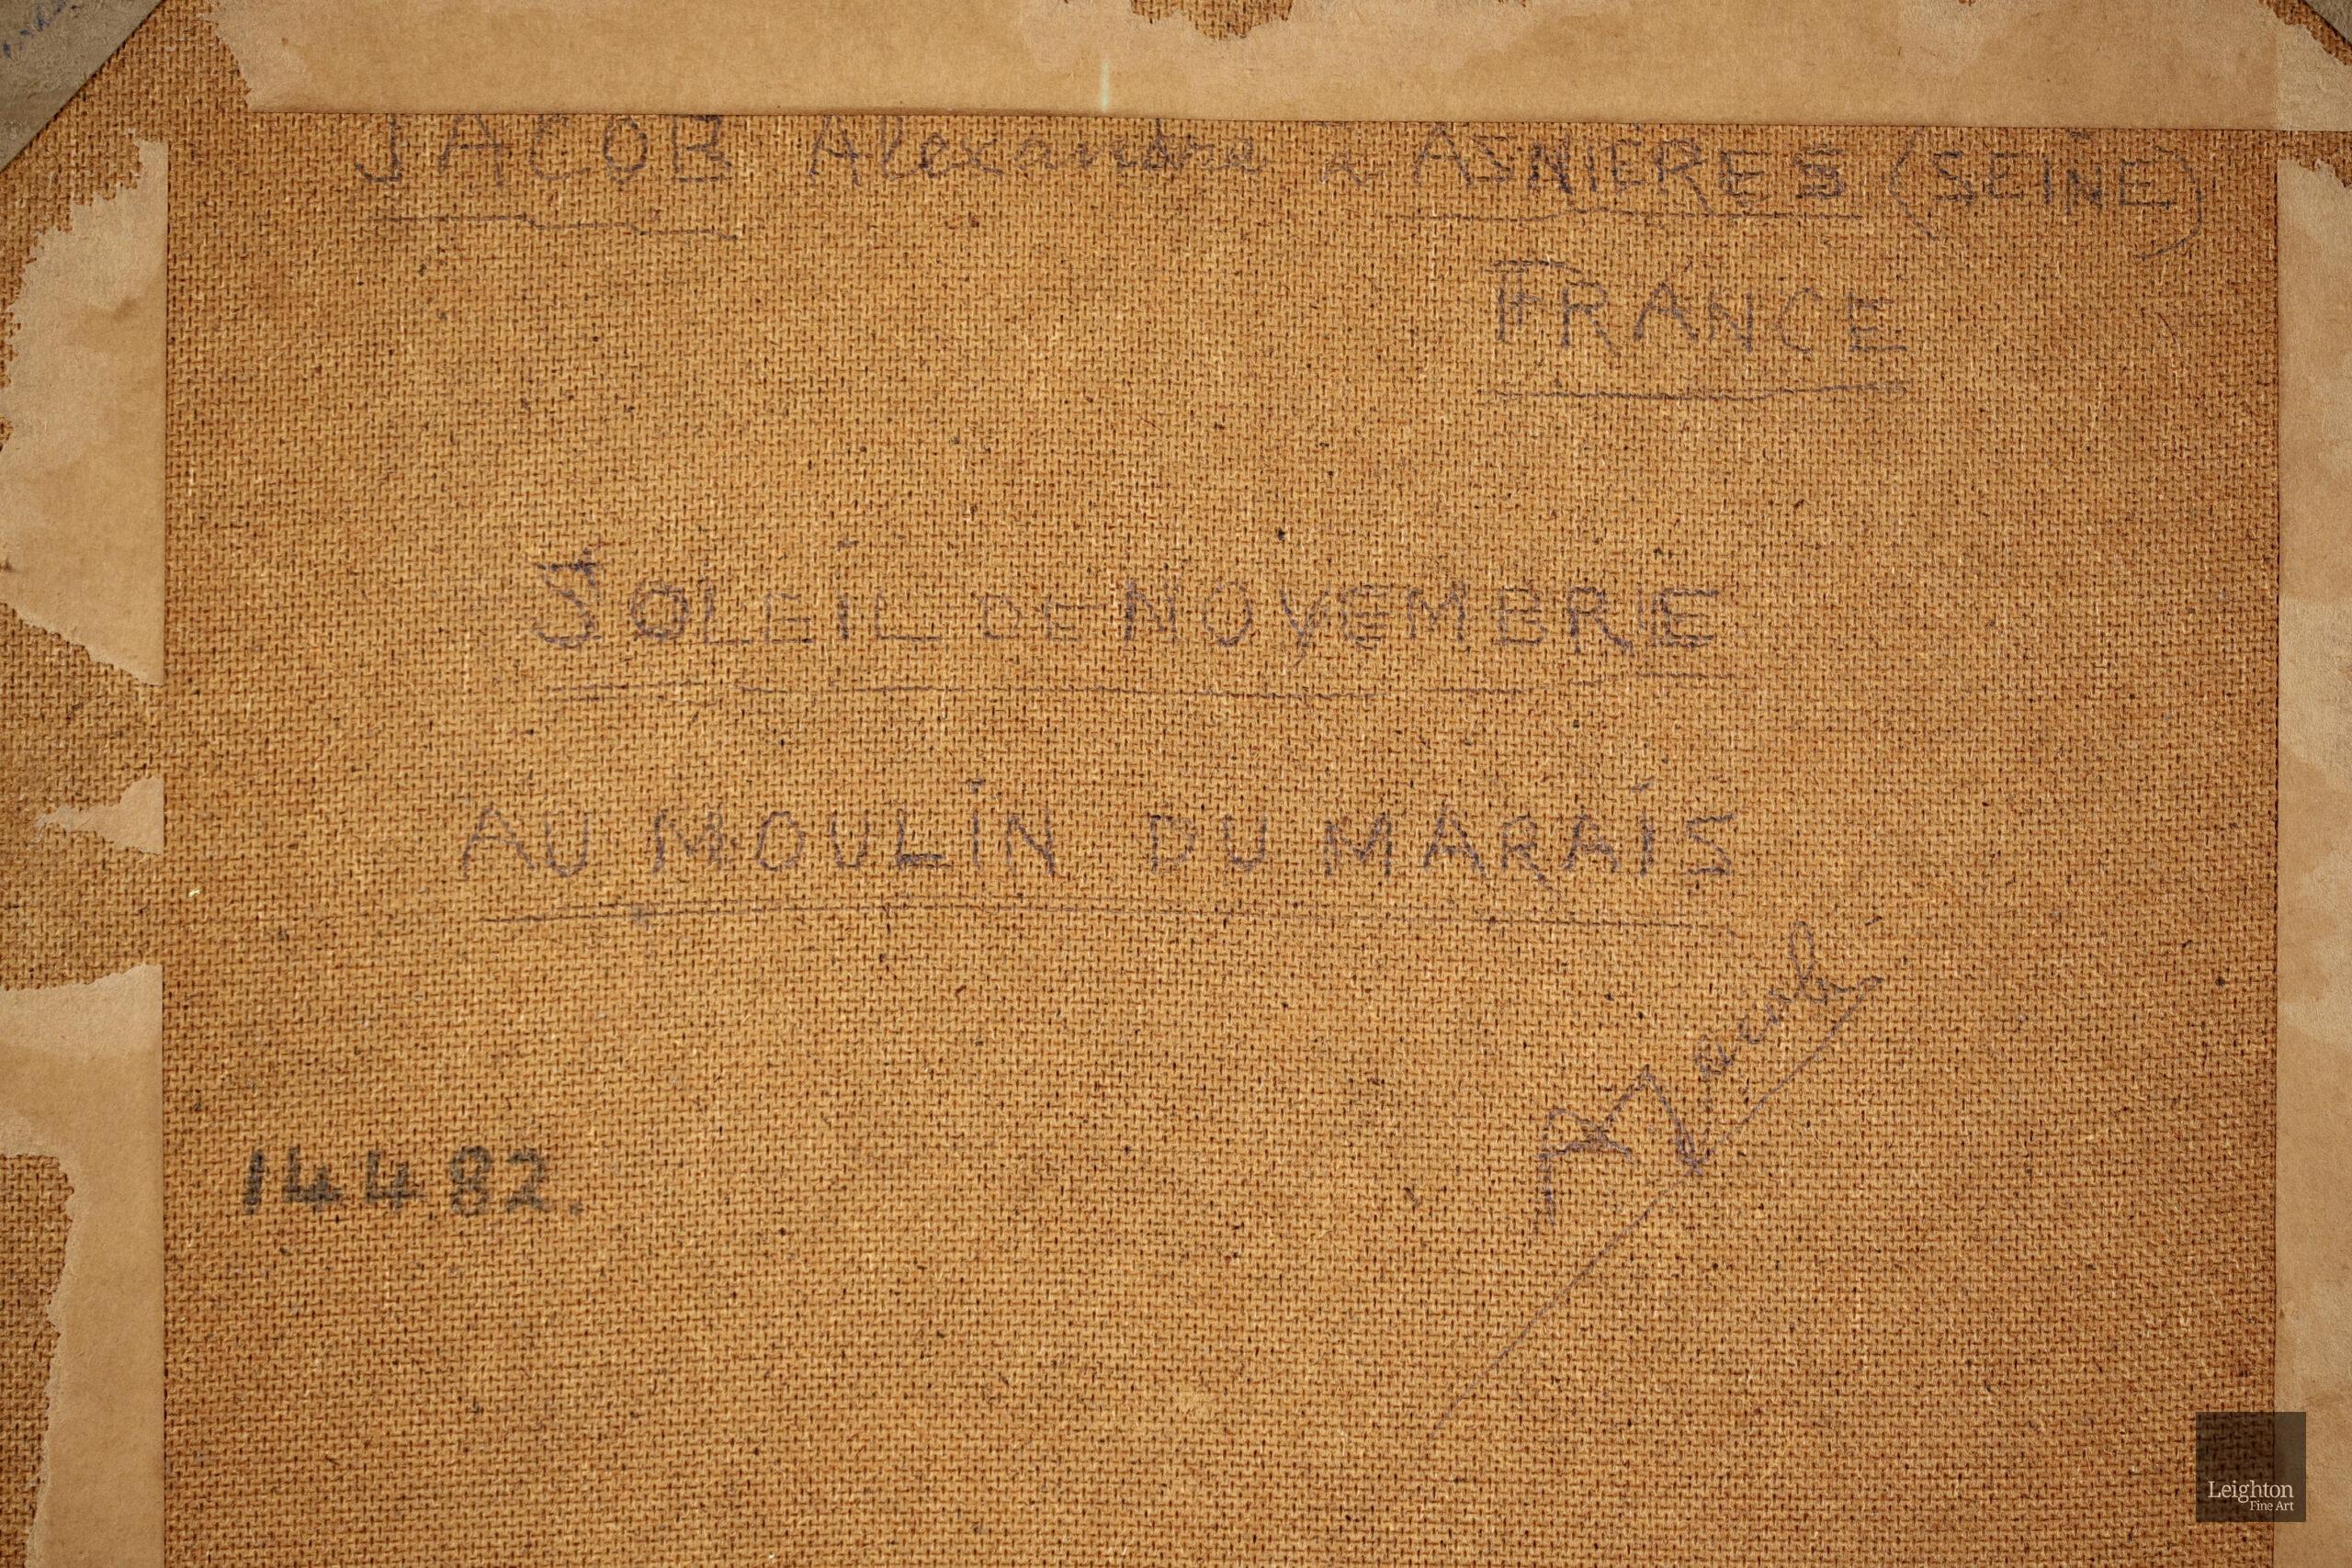 JACOB Alexandre à ASNIÈRES (SEINE)
FRANCE
SOLEIL DE NOVEMBRE
AU MOULIN DU MARAIS
Jacob
14482.
Leighton
Fine Art